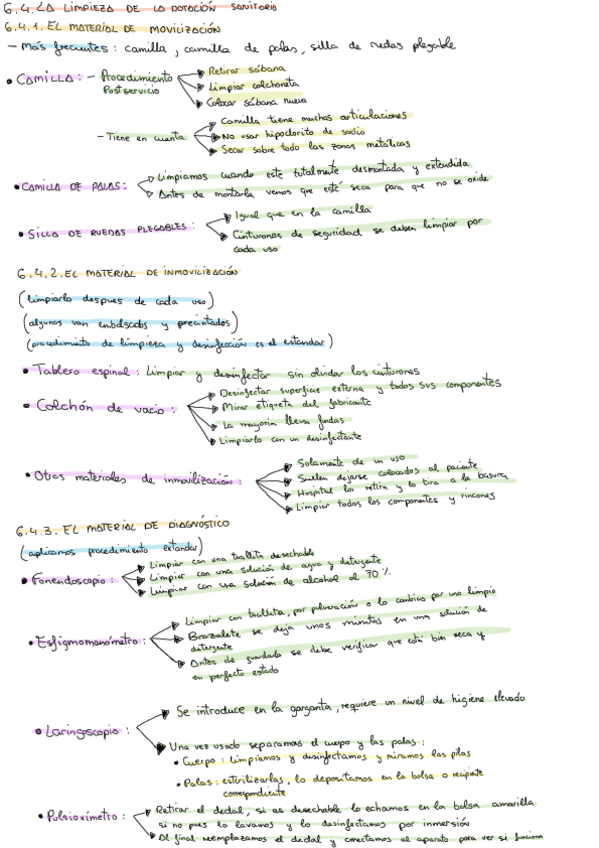 6.4. LA LIMPIEZA DE LA DOTACIÓN SANITARIA
6.4.1. EL MATERIAL DE MOVILIZACIÓN
- Más frecuentes: camilla, camilla de palas, silla de ruedas plegable
• CAMILLA: - Procedimiento Postservicio
Retirar sábana
Limpiar colchoneta
Colocar sábana nueva
- Tiene en cuenta
Camilla tiene muchas articulaciones
No usar hipoclorito de sodio
Secar sobre todo las zonas metálicas
• CAMILLA DE PALAS:
Limpiamos cuando esté totalmente desmontada y extendida
Antes de montarla vemos que esté seca para que no se oxide
• SILLA DE RUEDAS PLEGABLES:
Igual que en la camilla
Cinturones de seguridad se deben limpiar por
cada uso
6.4.2. EL MATERIAL DE INMOVILIZACIÓN
(limpiarlo despues de cada uso)
(algunos van embolsados y precintados)
(procedimiento de limpieza y desinfección es el estandar)
• Tablero espinal: Limpiar y desinfectar sin olvidar los cinturones
• Colchón de vacio:
Desinfectar superficie externa y todos sus componentes
Mirar etiqueta del fabricante
La mayoria lleva fundas
Limpiarlo con un desinfectante
• Otros materiales de inmovilización:
Solamente de un uso
Suelen dejarse colocados al paciente
Hospital los retira y lo tira a la basura
Limpiar todos los componentes y rincones
6.4.3. EL MATERIAL DE DIAGNÓSTICO
(aplicamos procedimiento estandar)
• Fonendoscopio:
Limpiar con una toallita desechable
Limpiar con una solución de agua y detergente
Limpiar con una solución de alcohol al 70 %
• Esfigmomanómetro:
Limpiar con toallita, por pulverización o lo cambio por uno limpio
Brazalete se deja unos minutos en una solución de
detergente
Antes de guardarlo se debe verificar que está bien seca y
en perfecto estado
• Laringoscopio:
Se introduce en la garganta, requiere un nivel de higiene elevado
Una vez usado separamos el cuerpo y las palas:
• Cuerpo: limpiamos y desinfectamos y miramos las pilas
• Palas: esterilizarlas, lo depositamos en la bolsa o recipiente
correspondiente
• Pulsioximetro:
Retirar el dedal, si es desechable lo echamos en la bolsa amarilla
si no pues lo lavamos y lo desinfectamos por inmersión
Al final reemplazamos el dedal y conectamos al aparato para ver si funciona